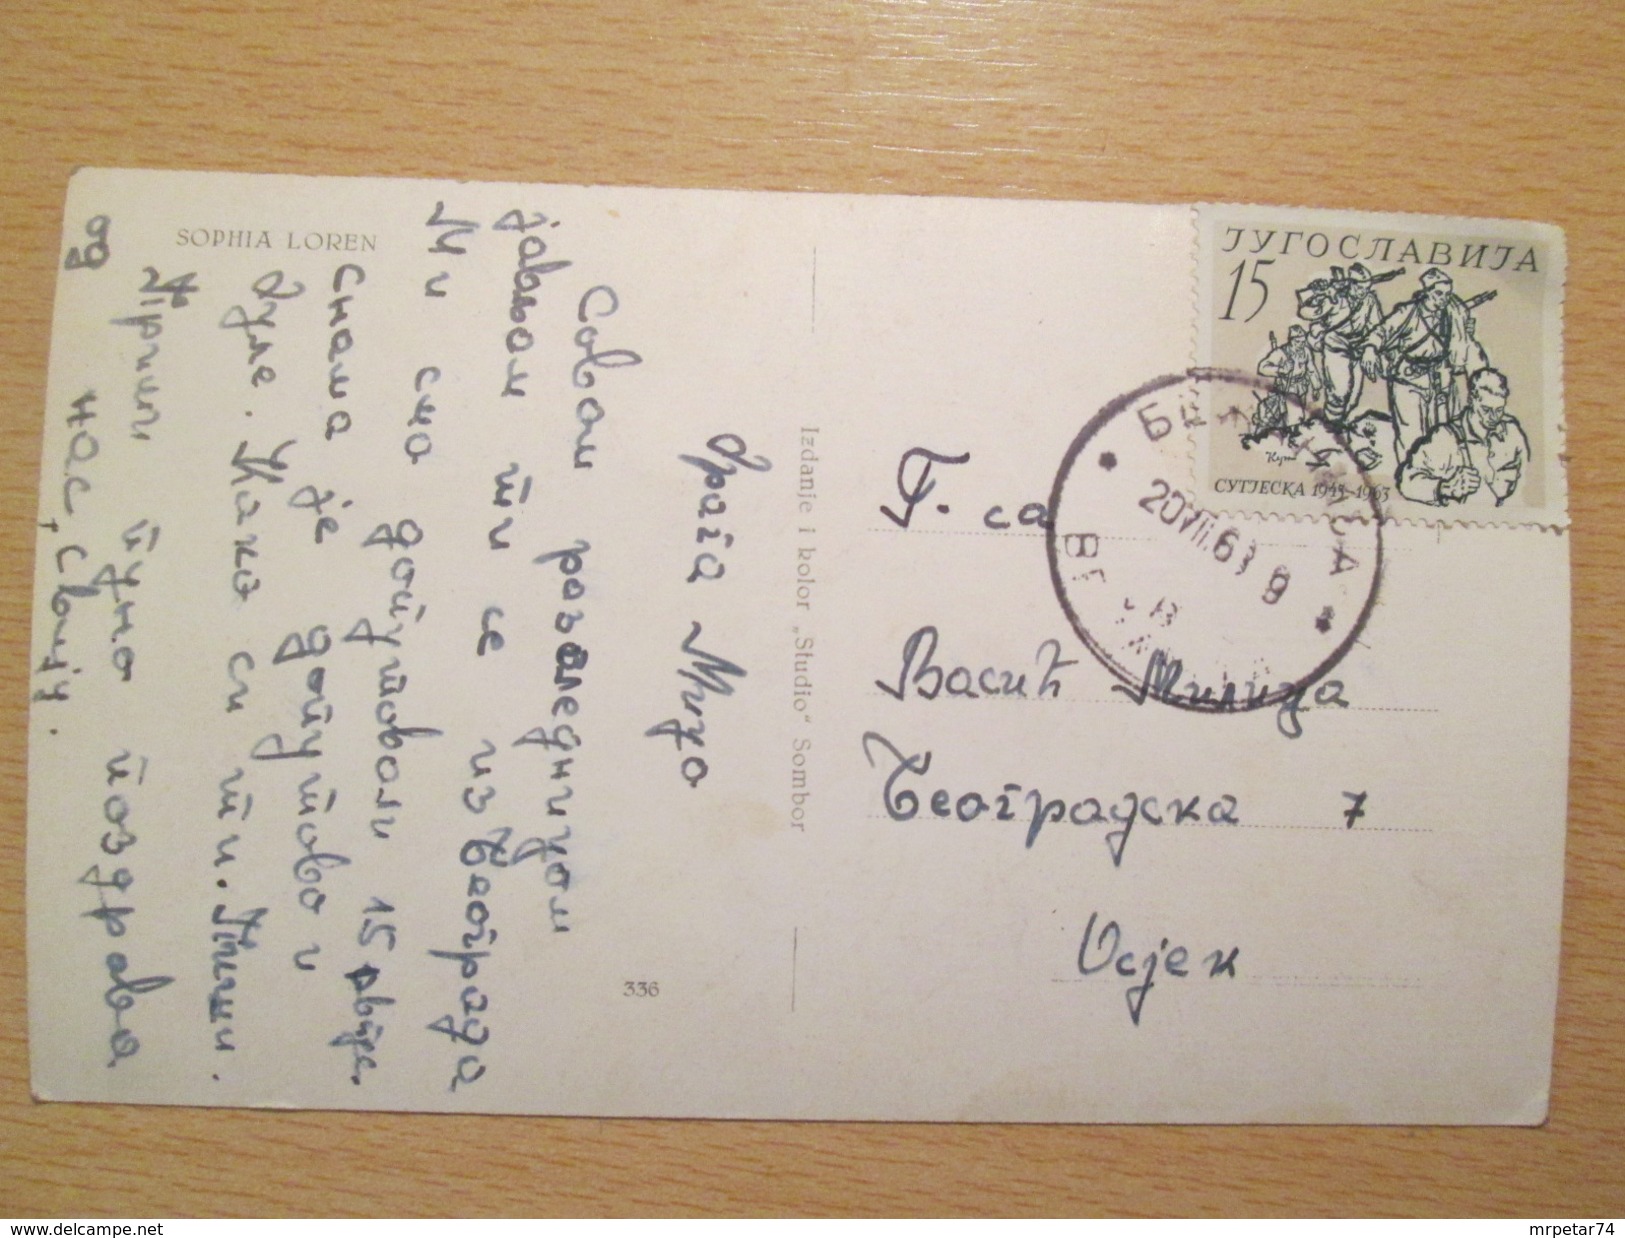 SOPHIA LOREN
Драга Мицо
Совом разгледницом
јављам ти се из Београда
Ми смо допутовали 15 овде.
снаша је допутовала
Јуле. Како си ти. Пиши.
Прими пуно поздрава
од нас свију.
336
Izdanje i kolor „Studio“ Sombor
ЈУГОСЛАВИЈА
15
СУТЈЕСКА 1943-1963
20 VII. 63 9
Г-са
Васић Милица
Београдска 7
Осјек
delcampe.net
mrpetar74